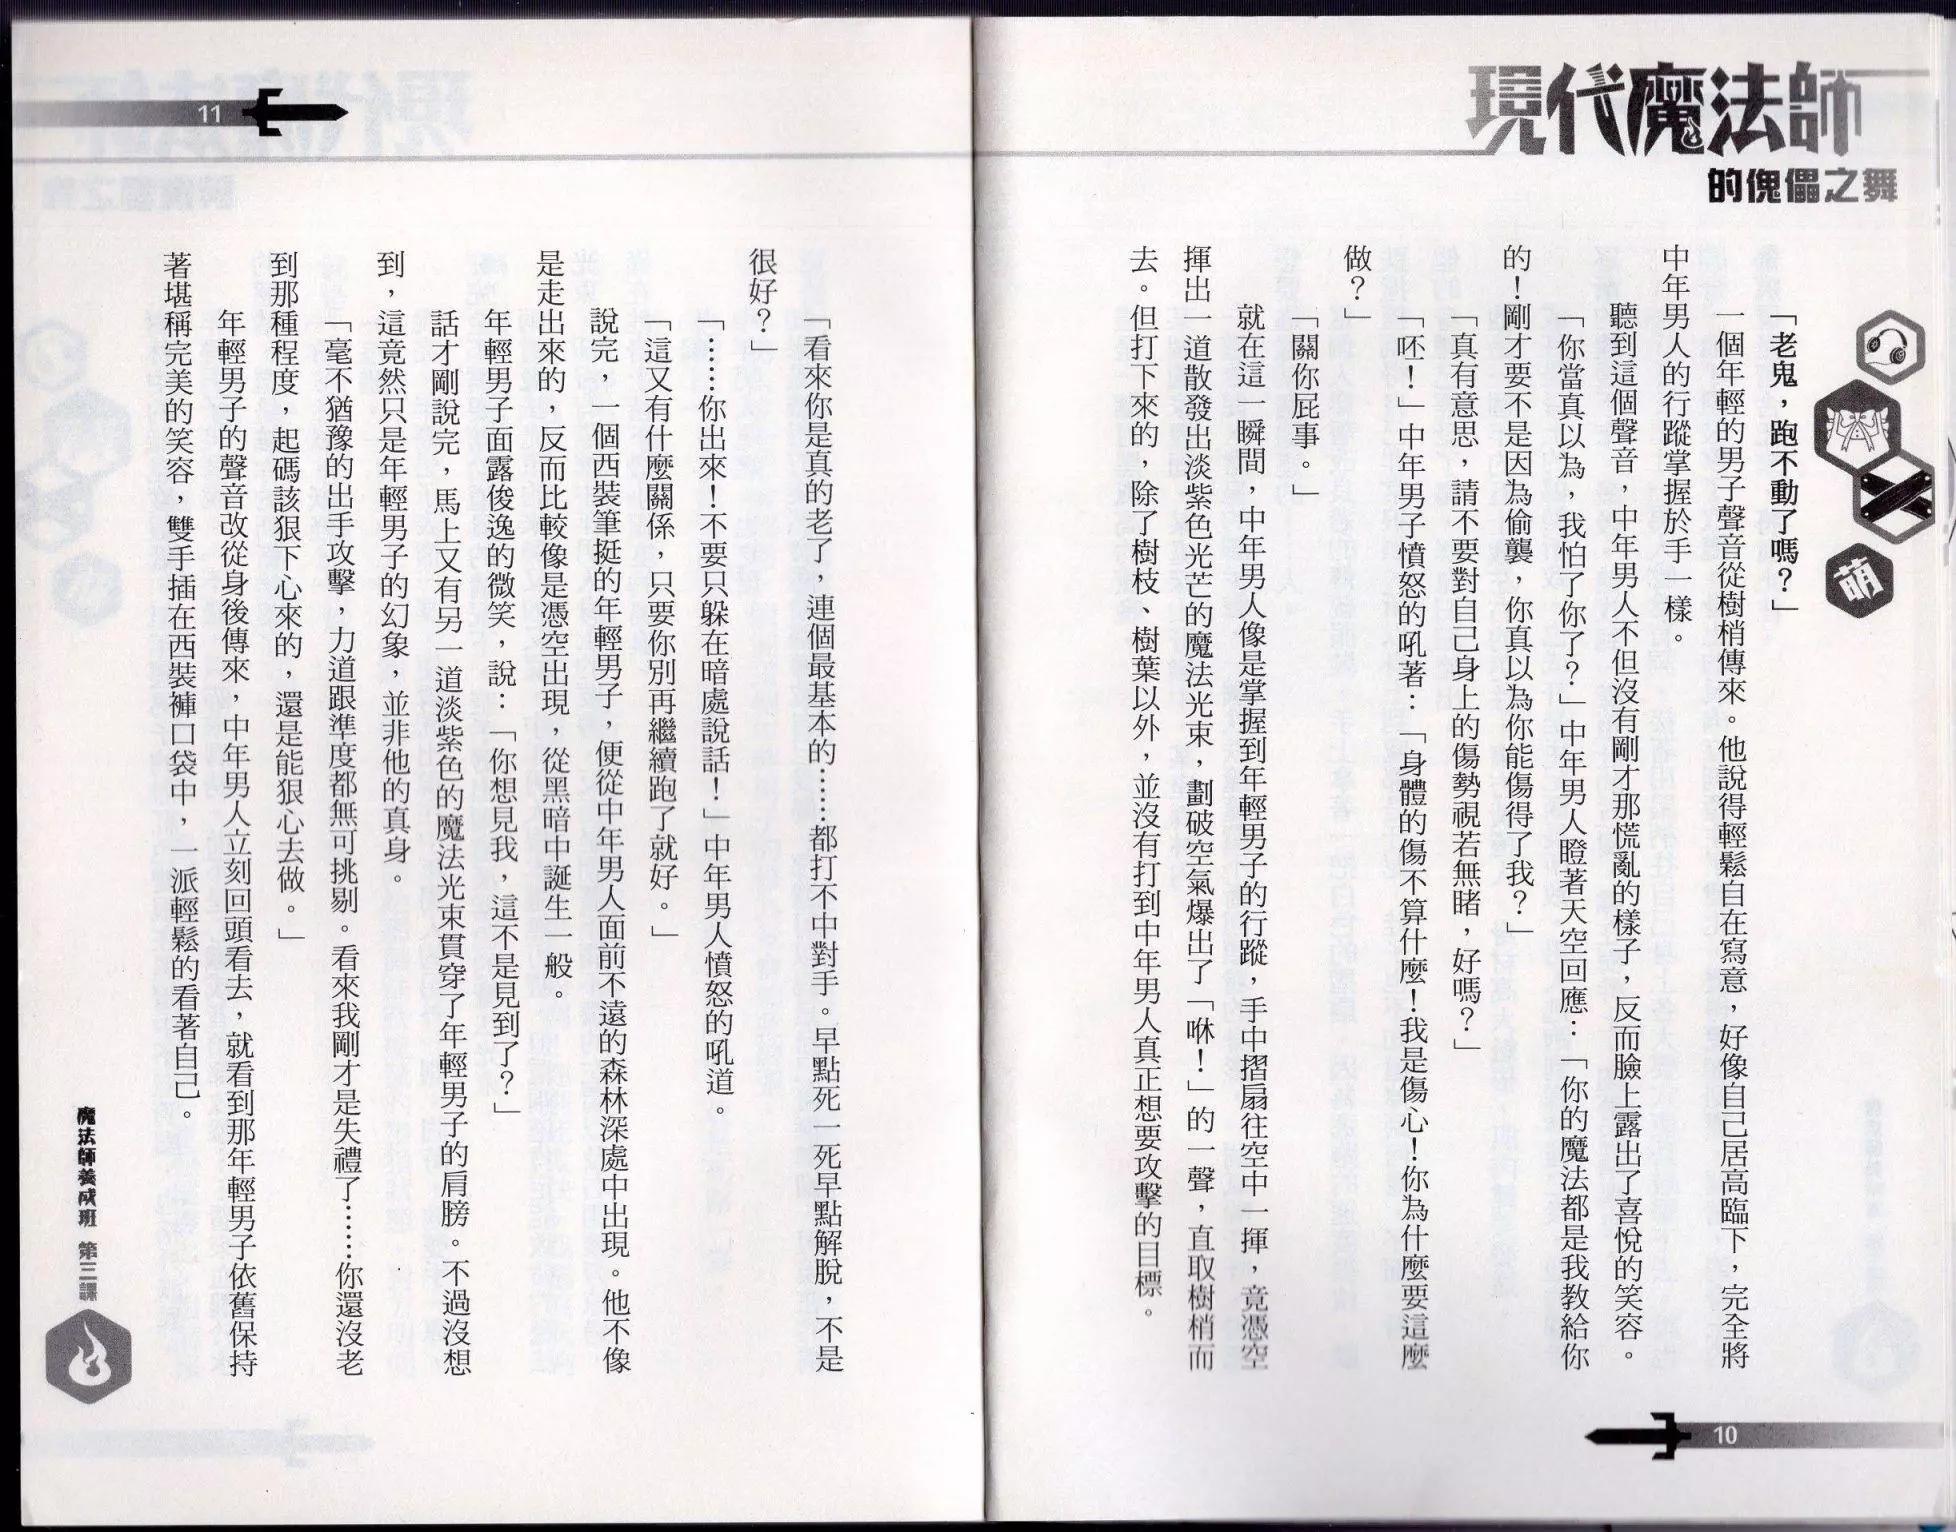 現代魔法師
的傀儡之舞
萌
「老鬼，跑不動了嗎？」
一個年輕的男子聲音從樹梢傳來。他說得輕鬆自在寫意，好像自己居高臨下，完全將
中年男人的行蹤掌握於手一樣。
聽到這個聲音，中年男人不但沒有剛才那慌亂的樣子，反而臉上露出了喜悅的笑容。
「你當真以為，我怕了你了？」中年男人瞪著天空回應：「你的魔法都是我教給你
的！剛才要不是因為偷襲，你真以為你能傷得了我？」
「真有意思，請不要對自己身上的傷勢視若無睹，好嗎？」
「呸！」中年男子憤怒的吼著：「身體的傷不算什麼！我是傷心！你為什麼要這麼
做？」
「關你屁事。」
就在這一瞬間，中年男人像是掌握到年輕男子的行蹤，手中摺扇往空中一揮，竟憑空
揮出一道散發出淡紫色光芒的魔法光束，劃破空氣爆出了「咻！」的一聲，直取樹梢而
去。但打下來的，除了樹枝、樹葉以外，並沒有打到中年男人真正想要攻擊的目標。
10
11
「看來你是真的老了，連個最基本的……都打不中對手。早點死一死早點解脫，不是
很好？」
「……你出來！不要只躲在暗處說話！」中年男人憤怒的吼道。
「這又有什麼關係，只要你別再繼續跑了就好。」
說完，一個西裝筆挺的年輕男子，便從中年男人面前不遠的森林深處中出現。他不像
是走出來的，反而比較像是憑空出現，從黑暗中誕生一般。
年輕男子面露俊逸的微笑，說：「你想見我，這不是見到了？」
話才剛說完，馬上又有另一道淡紫色的魔法光束貫穿了年輕男子的肩膀。不過沒想
到，這竟然只是年輕男子的幻象，並非他的真身。
「毫不猶豫的出手攻擊，力道跟準度都無可挑剔。看來我剛才是失禮了……你還沒老
到那種程度，起碼該狠下心來的，還是能狠心去做。」
年輕男子的聲音改從身後傳來，中年男人立刻回頭看去，就看到那年輕男子依舊保持
著堪稱完美的笑容，雙手插在西裝褲口袋中，一派輕鬆的看著自己。
魔法師養成班 第三課